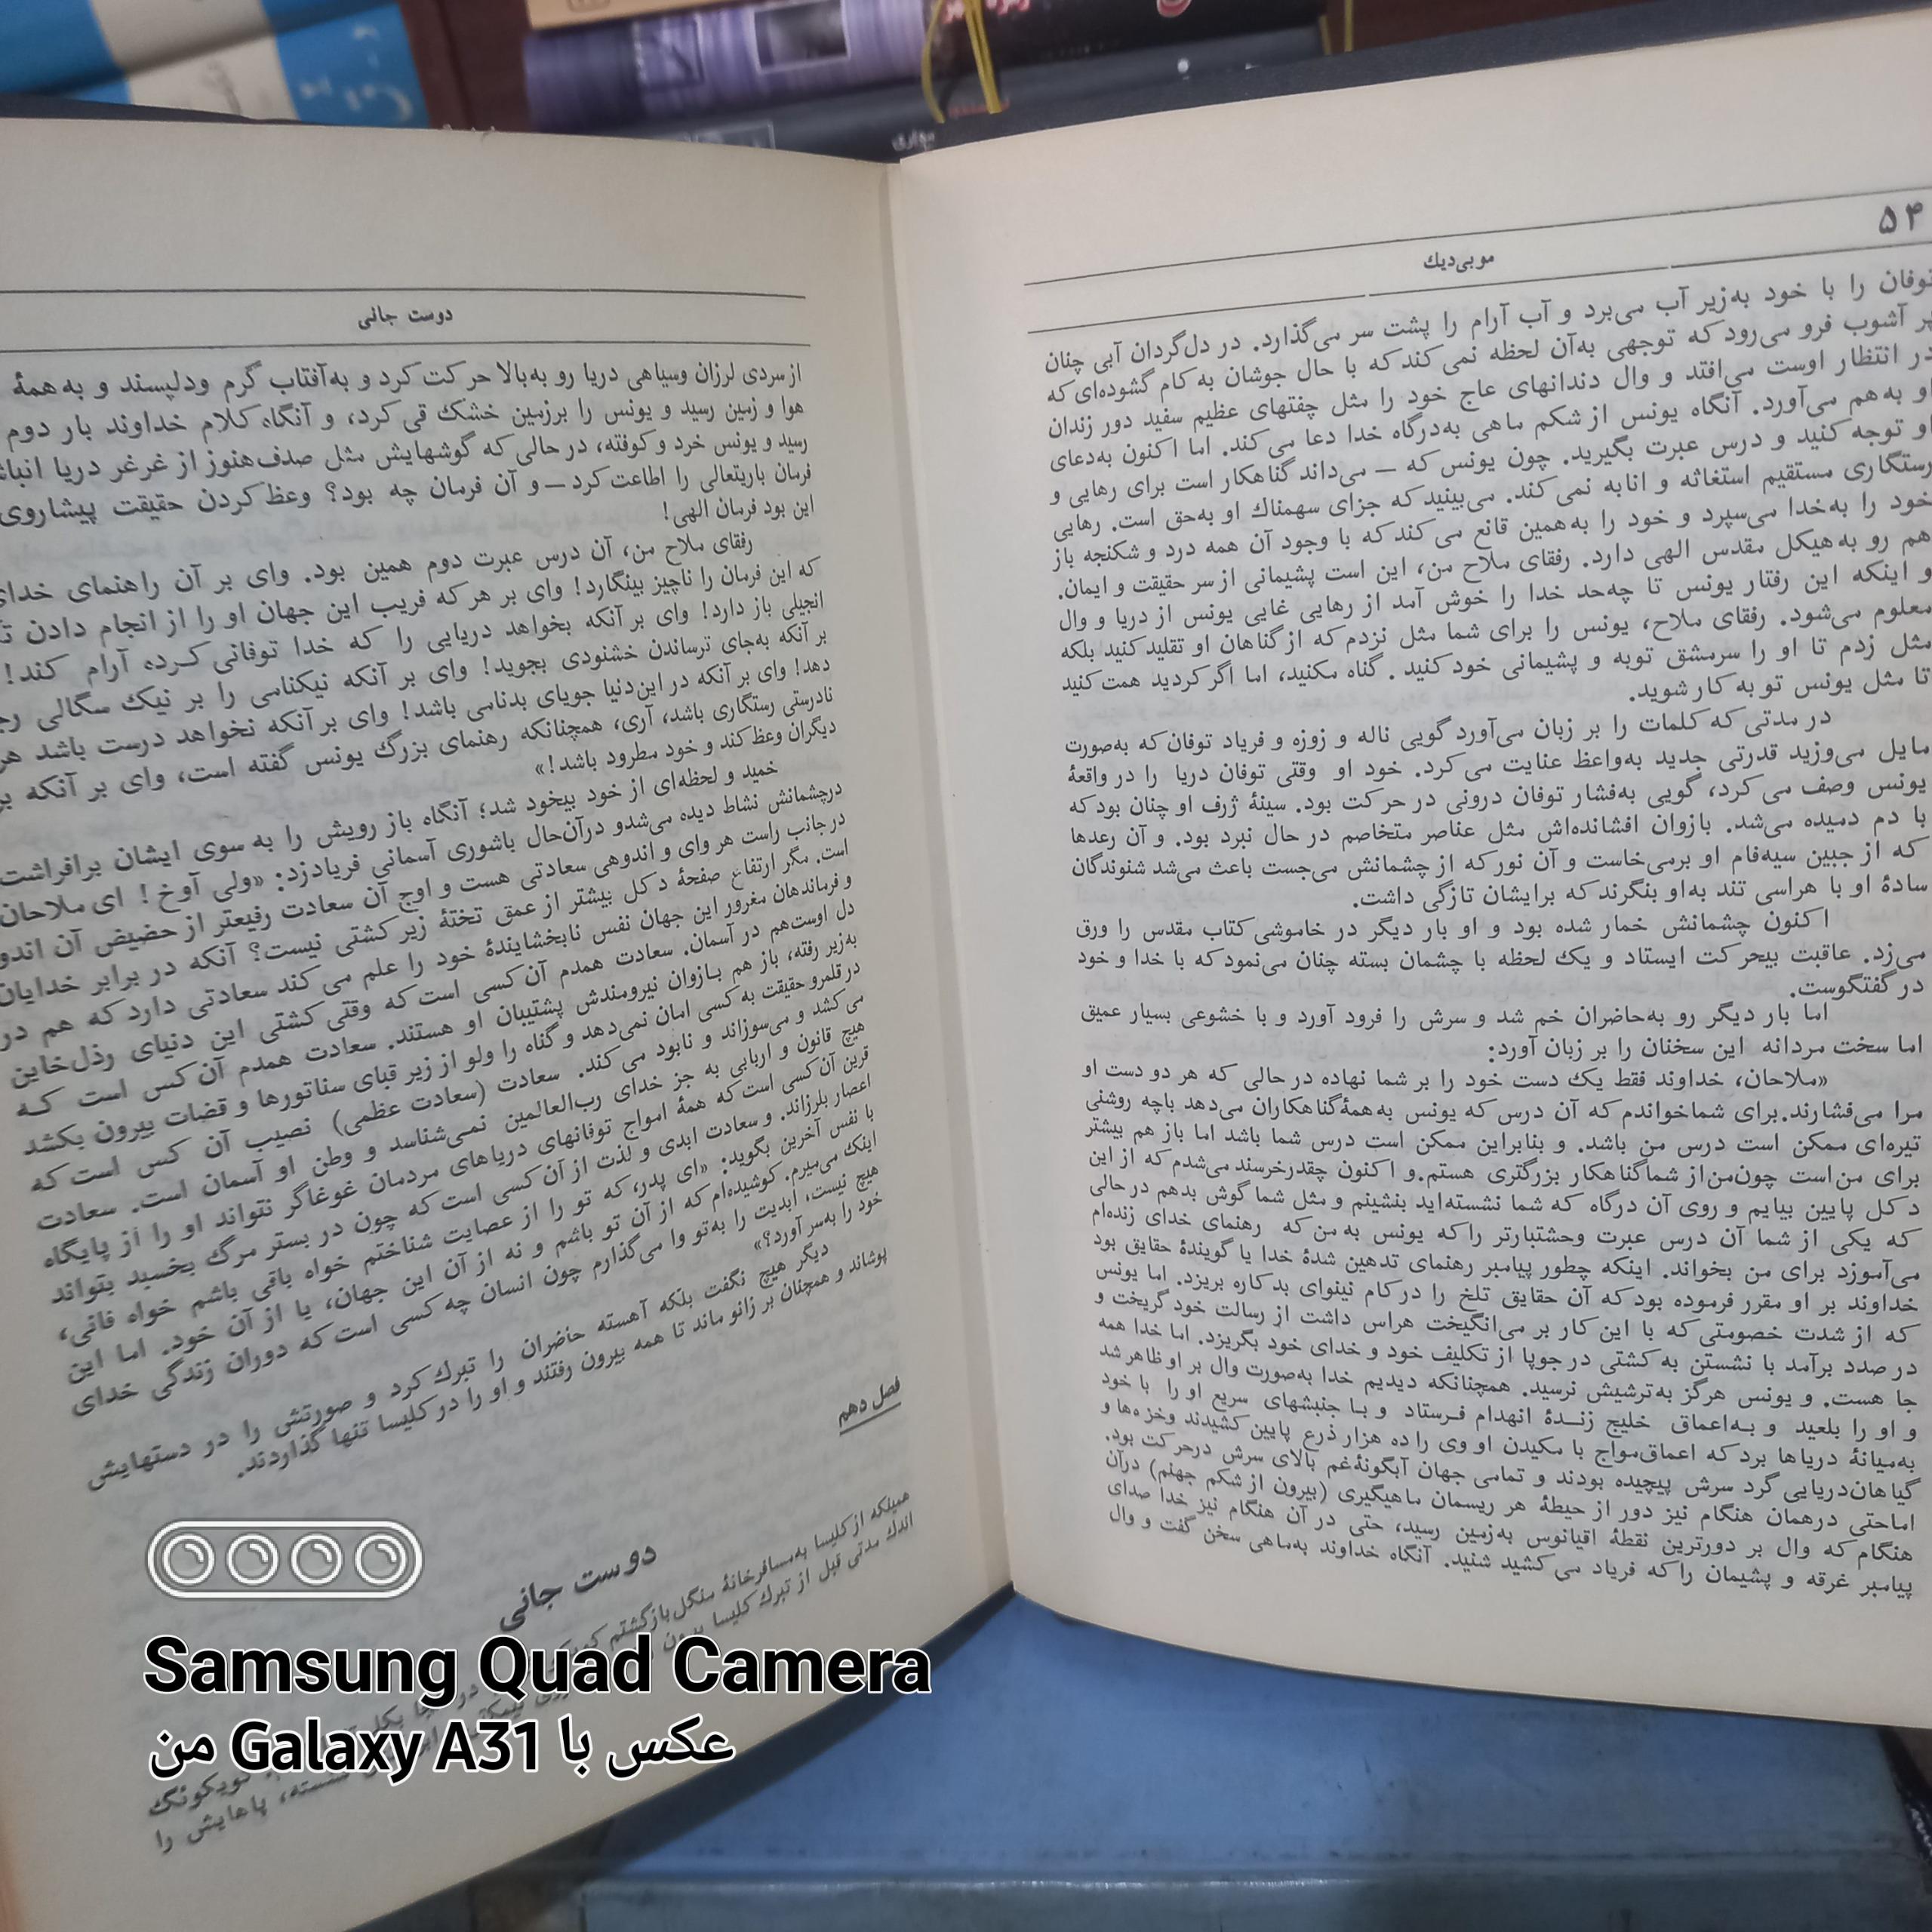 ۵۴
موبی‌دیك
توفان را با خود به‌زیر آب می‌برد و آب آرام را پشت سر می‌گذارد. در دل‌گردان آبی چنان
پر آشوب فرو می‌رود که توجهی به‌آن لحظه نمی‌کند که با حال جوشان به کام گشوده‌ای که
در انتظار اوست می‌افتد و وال دندانهای عاج خود را مثل چفتهای عظیم سفید دور زندان
او به هم می‌آورد. آنگاه یونس از شکم ماهی به‌درگاه خدا دعا می‌کند. اما اکنون به‌دعای
او توجه کنید و درس عبرت بگیرید. چون یونس که — می‌داند گناهکار است برای رهایی و
رستگاری مستقیم استغاثه و انابه نمی‌کند. می‌بینید که جزای سهمناك او به‌حق است. رهایی
خود را به‌خدا می‌سپرد و خود را به‌همین قانع می‌کند که با وجود آن همه درد و شکنجه باز
هم رو به هیکل مقدس الهی دارد. رفقای ملاح من، این است پشیمانی از سر حقیقت و ایمان.
و اینکه این رفتار یونس تا چه‌حد خدا را خوش آمد از رهایی غایی یونس از دریا و وال
معلوم می‌شود. رفقای ملاح، یونس را برای شما مثل نزدم که از گناهان او تقلید کنید بلکه
مثل زدم تا او را سرمشق توبه و پشیمانی خود کنید . گناه مکنید، اما اگر کردید همت کنید
تا مثل یونس توبه کار شوید.
در مدتی که کلمات را بر زبان می‌آورد گویی ناله و زوزه و فریاد توفان که به‌صورت
مایل می‌وزید قدرتی جدید به‌واعظ عنایت می‌کرد. خود او وقتی توفان دریا را در واقعهٔ
یونس وصف می‌کرد، گویی به‌فشار توفان درونی در حرکت بود. سینهٔ ژرف او چنان بود که
با دم دمیده می‌شد. بازوان افشانده‌اش مثل عناصر متخاصم در حال نبرد بود. و آن رعدها
که از جبین سیه‌فام او برمی‌خاست و آن نور که از چشمانش می‌جست باعث می‌شد شنوندگان
سادهٔ او با هراسی تند به‌او بنگرند که برایشان تازگی داشت.
اکنون چشمانش خمار شده بود و او بار دیگر در خاموشی کتاب مقدس را ورق
می‌زد. عاقبت بیحرکت ایستاد و یك لحظه با چشمان بسته چنان می‌نمود که با خدا و خود
در گفتگوست.
اما بار دیگر رو به‌حاضران خم شد و سرش را فرود آورد و با خشوعی بسیار عمیق
اما سخت مردانه این سخنان را بر زبان آورد:
«ملاحان، خداوند فقط یك دست خود را بر شما نهاده در حالی که هر دو دست او
مرا می‌فشارند.برای شماخواندم که آن درس که یونس به همهٔ گناهکاران می‌دهد باچه روشنی
تیره‌ای ممکن است درس من باشد. و بنابراین ممکن است درس شما باشد اما باز هم بیشتر
برای من‌است چون‌من‌از شماگناهکار بزرگتری هستم.و اکنون چقدرخرسند می‌شدم که از این
دکل پایین بیایم و روی آن درگاه که شما نشسته‌اید بنشینم و مثل شما گوش بدهم در حالی
که یکی از شما آن درس عبرت وحشتبارتر را که یونس به من که رهنمای خدای زنده‌ام
می‌آموزد برای من بخواند. اینکه چطور پیامبر رهنمای تدهین شدهٔ خدا یا گویندهٔ حقایق بود
خداوند بر او مقرر فرموده بود که آن حقایق تلخ را در کام نینوای بدکاره بریزد. اما یونس
که از شدت خصومتی که با این کار بر می‌انگیخت هراس داشت از رسالت خود گریخت و
در صدد برآمد با نشستن به کشتی در جوپا از تکلیف خود و خدای خود بگریزد. اما خدا همه
جا هست. و یونس هرگز به‌ترشیش نرسید. همچنانکه دیدیم خدا به‌صورت وال بر او ظاهر شد
و او را بلعید و به‌اعماق خلیج زنـدهٔ انهدام فـرستاد و بـا جنبشهای سریع او را با خود
به‌میانهٔ دریاها برد که اعماق‌مواج با مکیدن او وی را ده هزار ذرع پایین کشیدند وخزه‌ها و
گیاهان‌دریایی گرد سرش پیچیده بودند و تمامی جهان آبگونهٔ‌غم بالای سرش درحرکت بود.
اماحتی درهمان هنگام نیز دور از حیطهٔ هر ریسمان ماهیگیری (بیرون از شکم جهنم) درآن
هنگام که وال بر دورترین نقطهٔ اقیانوس به‌زمین رسید، حتی در آن هنگام نیز خدا صدای
پیامبر غرقه و پشیمان را که فریاد می‌کشید شنید. آنگاه خداوند به‌ماهی سخن گفت و وال
دوست جانی
از سردی لرزان وسیاهی دریا رو به‌بالا حرکت کرد و به‌آفتاب گرم ودلپسند و به همهٔ
هوا و زمین رسید و یونس را برزمین خشك قی کرد، و آنگاه کلام خداوند بار دوم
رسید و یونس خرد و کوفته، در حالی که گوشهایش مثل صدف‌هنوز از غرغر دریا
فرمان باریتعالی را اطاعت کرد — و آن فرمان چه بود؟ وعظ کردن حقیقت پیشاروی
این بود فرمان الهی!
رفقای ملاح من، آن درس عبرت دوم همین بود. وای بر آن راهنمای خدای
که این فرمان را ناچیز بینگارد! وای بر هر که فریب این جهان او را از انجام دادن
انجیلی باز دارد! وای بر آنکه بخواهد دریایی را که خدا توفانی کـرده آرام کند!
بر آنکه به‌جای ترساندن خشنودی بجوید! وای بر آنکه نیکنامی را بر نیك سگالی
دهد! وای بر آنکه در این‌دنیا جویای بدنامی باشد! وای بر آنکه نخواهد درست باشد
نادرستی رستگاری باشد، آری، همچنانکه رهنمای بزرگ یونس گفته است، وای بر آنکه
دیگران وعظ کند و خود مطرود باشد!»
خمید و لحظه‌ای از خود بیخود شد؛ آنگاه باز رویش را به سوی ایشان برافراشت
درچشمانش نشاط دیده می‌شدو درآن‌حال باشوری آسمانی فریادزد: «ولی آوخ ! ای ملاحان
در جانب راست هر وای و اندوهی سعادتی هست و اوج آن سعادت رفیعتر از حضیض آن
است. مگر ارتفاع صفحهٔ دکل بیشتر از عمق تختهٔ زیر کشتی نیست؟ آنکه در برابر خدایان
و فرماندهان مغرور این جهان نفس نابخشایندهٔ خود را علم می‌کند سعادتی دارد که هم در
دل اوست‌هم در آسمان. سعادت همدم آن کسی است که وقتی کشتی این دنیای رذل‌خاین
به‌زیر رفته، باز هم بـازوان نیرومندش پشتیبان او هستند. سعادت همدم آن کس است که
در قلمرو حقیقت به کسی امان نمی‌دهد و گناه را ولو از زیر قبای سناتورها و قضات بیرون بکشد
می‌کشد و می‌سوزاند و نابود می‌کند. سعادت (سعادت عظمی) نصیب آن کس است که
هیچ قانون و اربابی به جز خدای رب‌العالمین نمی‌شناسد و وطن او آسمان است. سعادت
قرین آن کسی است که همهٔ امواج توفانهای دریاهای مردمان غوغاگر نتواند او را از پایگاه
اعصار بلرزاند. و سعادت ابدی و لذت از آن کسی است که چون در بستر مرگ بخسبد بتواند
با نفس آخرین بگوید: «ای پدر، که تو را از عصایت شناختم خواه باقی باشم خواه فانی،
اینك می‌میرم. کوشیده‌ام که از آن تو باشم و نه از آن این جهان، یا از آن خود. اما این
هیچ نیست، ابدیت را به‌تو وا می‌گذارم چون انسان چه کسی است که دوران زندگی خدای
خود را به‌سر آورد؟»
دیگر هیچ نگفت بلکه آهسته حاضران را تبرك کرد و صورتش را در دستهایش
پوشاند و همچنان بر زانو ماند تا همه بیرون رفتند و او را در کلیسا تنها گذاردند.
فصل دهم
دوست جانی
همینکه از کلیسا به‌مسافرخانهٔ منگل بازگشتم
اندك مدتی قبل از تبرك کلیسا
کویکوئگ
پاهایش را
Samsung Quad Camera
عکس با Galaxy A31 من